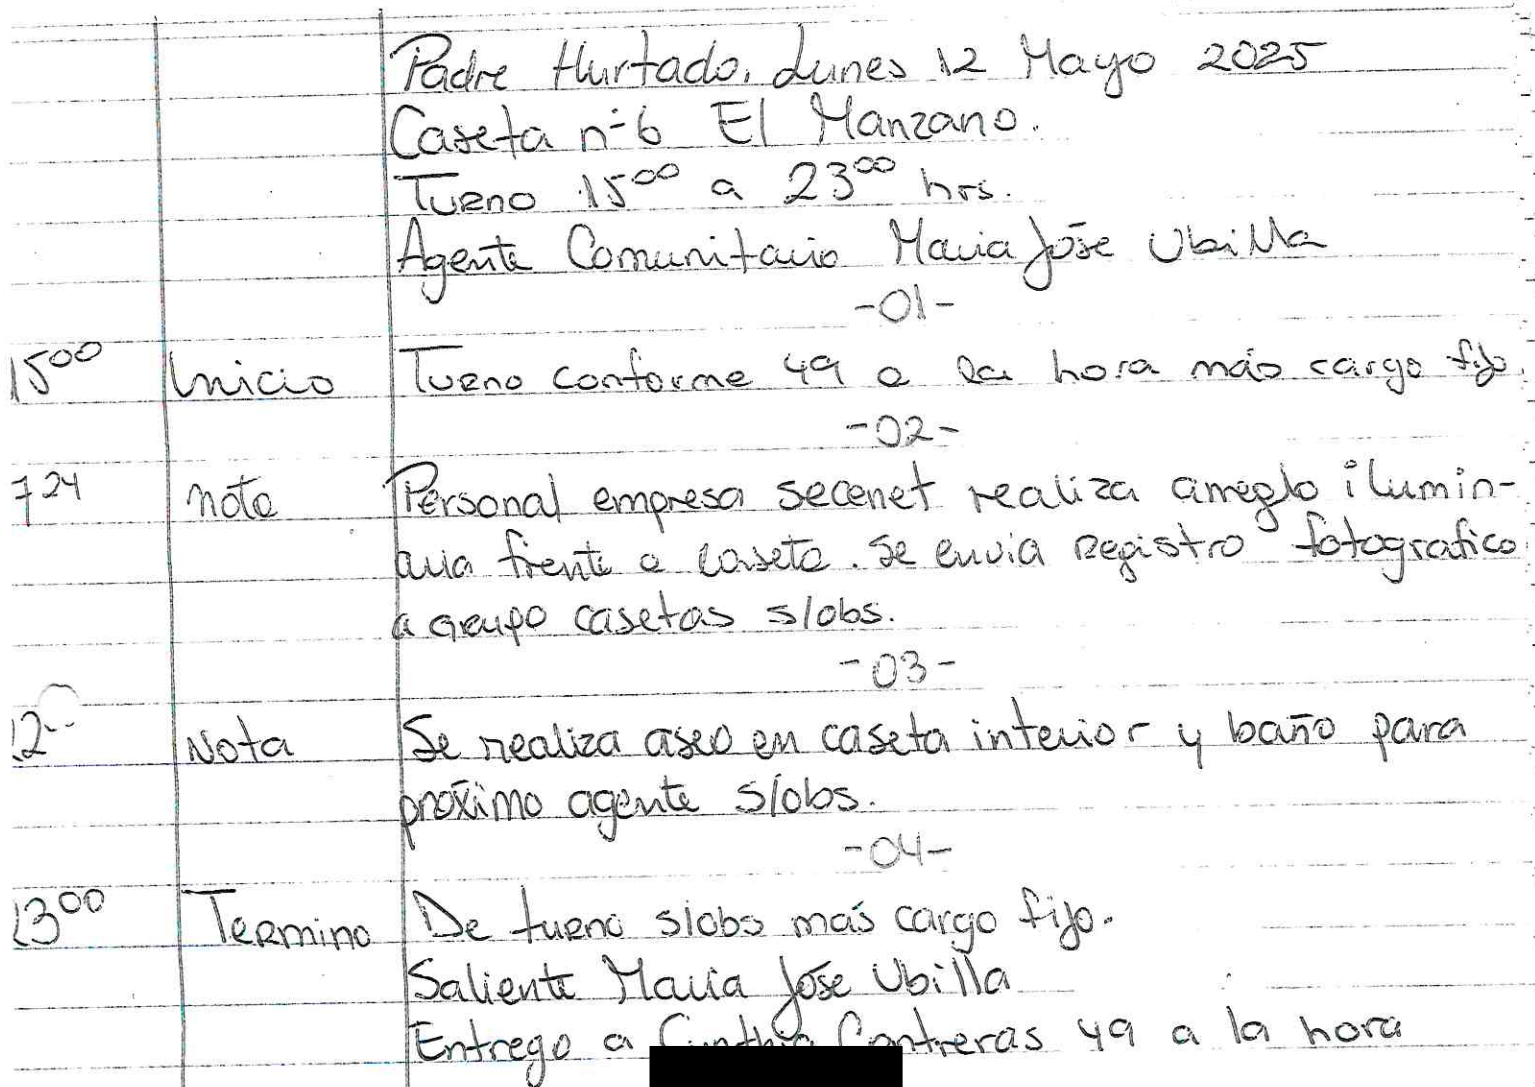 Padre Hurtado, Lunes 12 Mayo 2025
Caseta n°6 El Manzano.
Turno 15⁰⁰ a 23⁰⁰ hrs.
Agente Comunitario Maria José Ubilla
-01-
15⁰⁰ Inicio Turno conforme 49 a la hora más cargo fijo.
-02-
7²⁴ nota Personal empresa secenet realiza arreglo ilumin-
aria frente a caseta. Se envia Registro fotografico
a Grupo casetas s/obs.
-03-
Nota Se realiza aseo en caseta interior y baño para
próximo agente s/obs.
-04-
23⁰⁰ Termino De turno s/obs más cargo fijo.
Saliente Maria José Ubilla
Entrego a Cynthia Contreras 49 a la hora